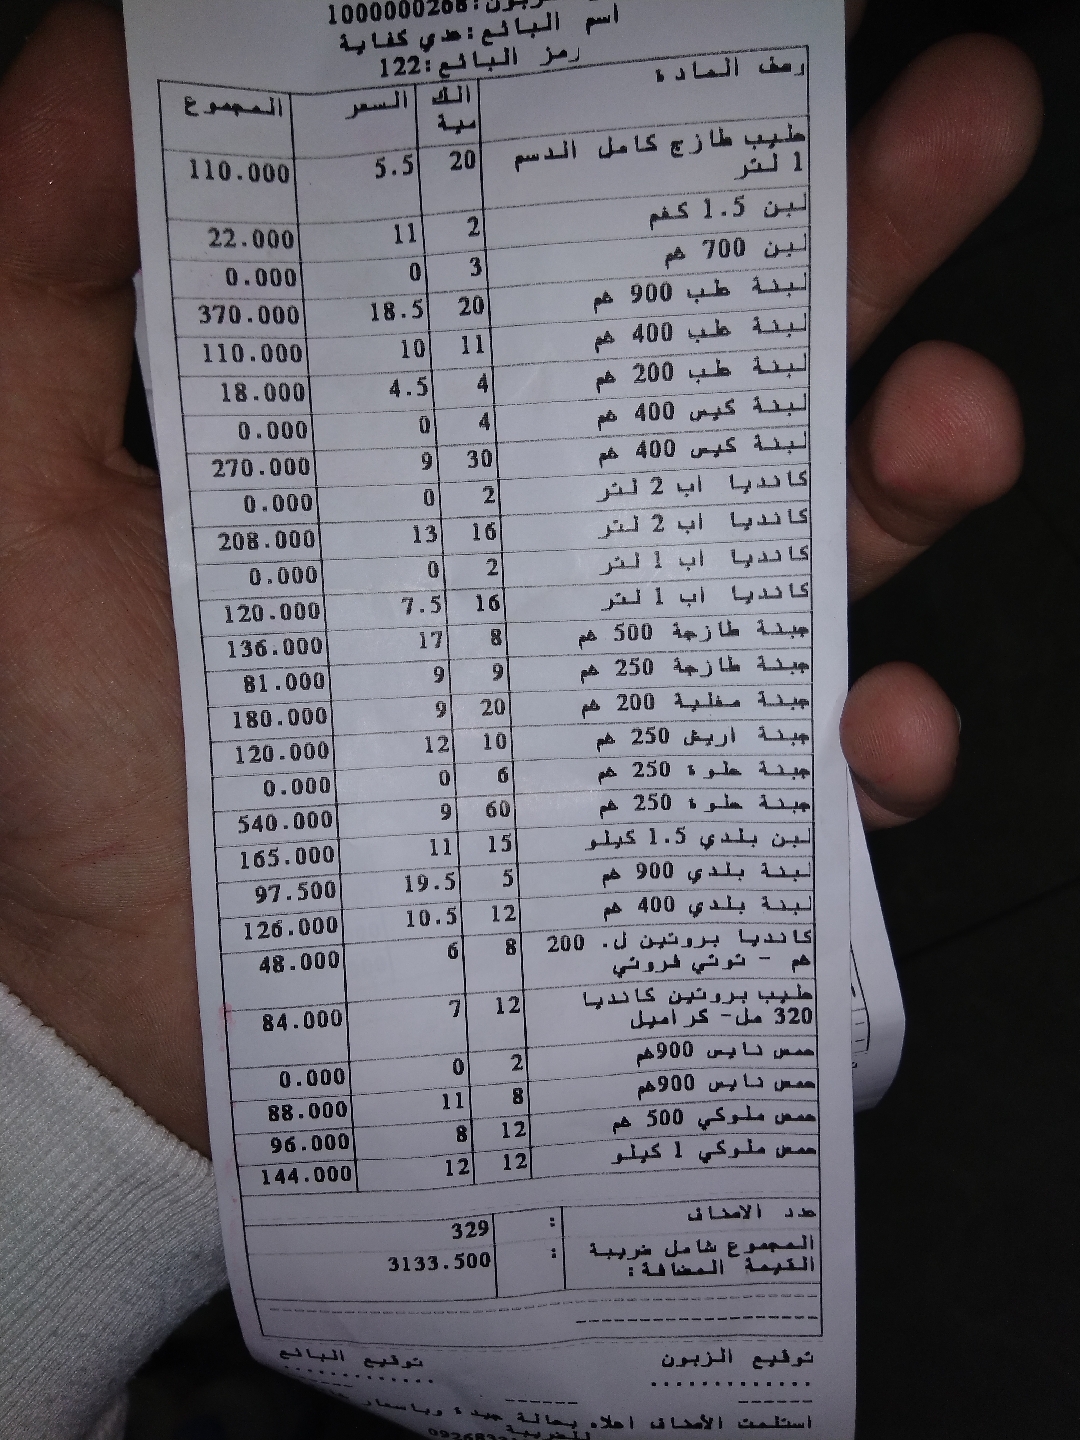 1000000268
اسم البائع:هدي كفاية
رمز البائع:122
وصف المادة الكمية السعر المجموع
حليب طازج كامل الدسم 1 لتر 20 5.5 110.000
لبن 1.5 كغم 2 11 22.000
لبن 700 غم 3 0 0.000
لبنة طب 900 غم 20 18.5 370.000
لبنة طب 400 غم 11 10 110.000
لبنة طب 200 غم 4 4.5 18.000
لبنة كيس 400 غم 4 0 0.000
لبنة كيس 400 غم 30 9 270.000
كانديا اب 2 لتر 2 0 0.000
كانديا اب 2 لتر 16 13 208.000
كانديا اب 1 لتر 2 0 0.000
كانديا اب 1 لتر 16 7.5 120.000
جبنة طازجة 500 غم 8 17 136.000
جبنة طازجة 250 غم 9 9 81.000
جبنة مغلية 200 غم 20 9 180.000
جبنة اريش 250 غم 10 12 120.000
جبنة حلوة 250 غم 6 0 0.000
جبنة حلوة 250 غم 60 9 540.000
لبن بلدي 1.5 كيلو 15 11 165.000
لبنة بلدي 900 غم 5 19.5 97.500
لبنة بلدي 400 غم 12 10.5 126.000
كانديا بروتين ل. 200 غم - توتي فروتي 8 6 48.000
حليب بروتين كانديا 320 مل- كراميل 12 7 84.000
حمص نايس 900غم 2 0 0.000
حمص نايس 900غم 8 11 88.000
حمص ملوكي 500 غم 12 8 96.000
حمص ملوكي 1 كيلو 12 12 144.000
عدد الاصناف : 329
المجموع شامل ضريبة القيمة المضافة: : 3133.500
توقيع الزبون توقيع البائع
استلمت الأصناف اعلاه بحالة جيدة وباسعار
للضريبة